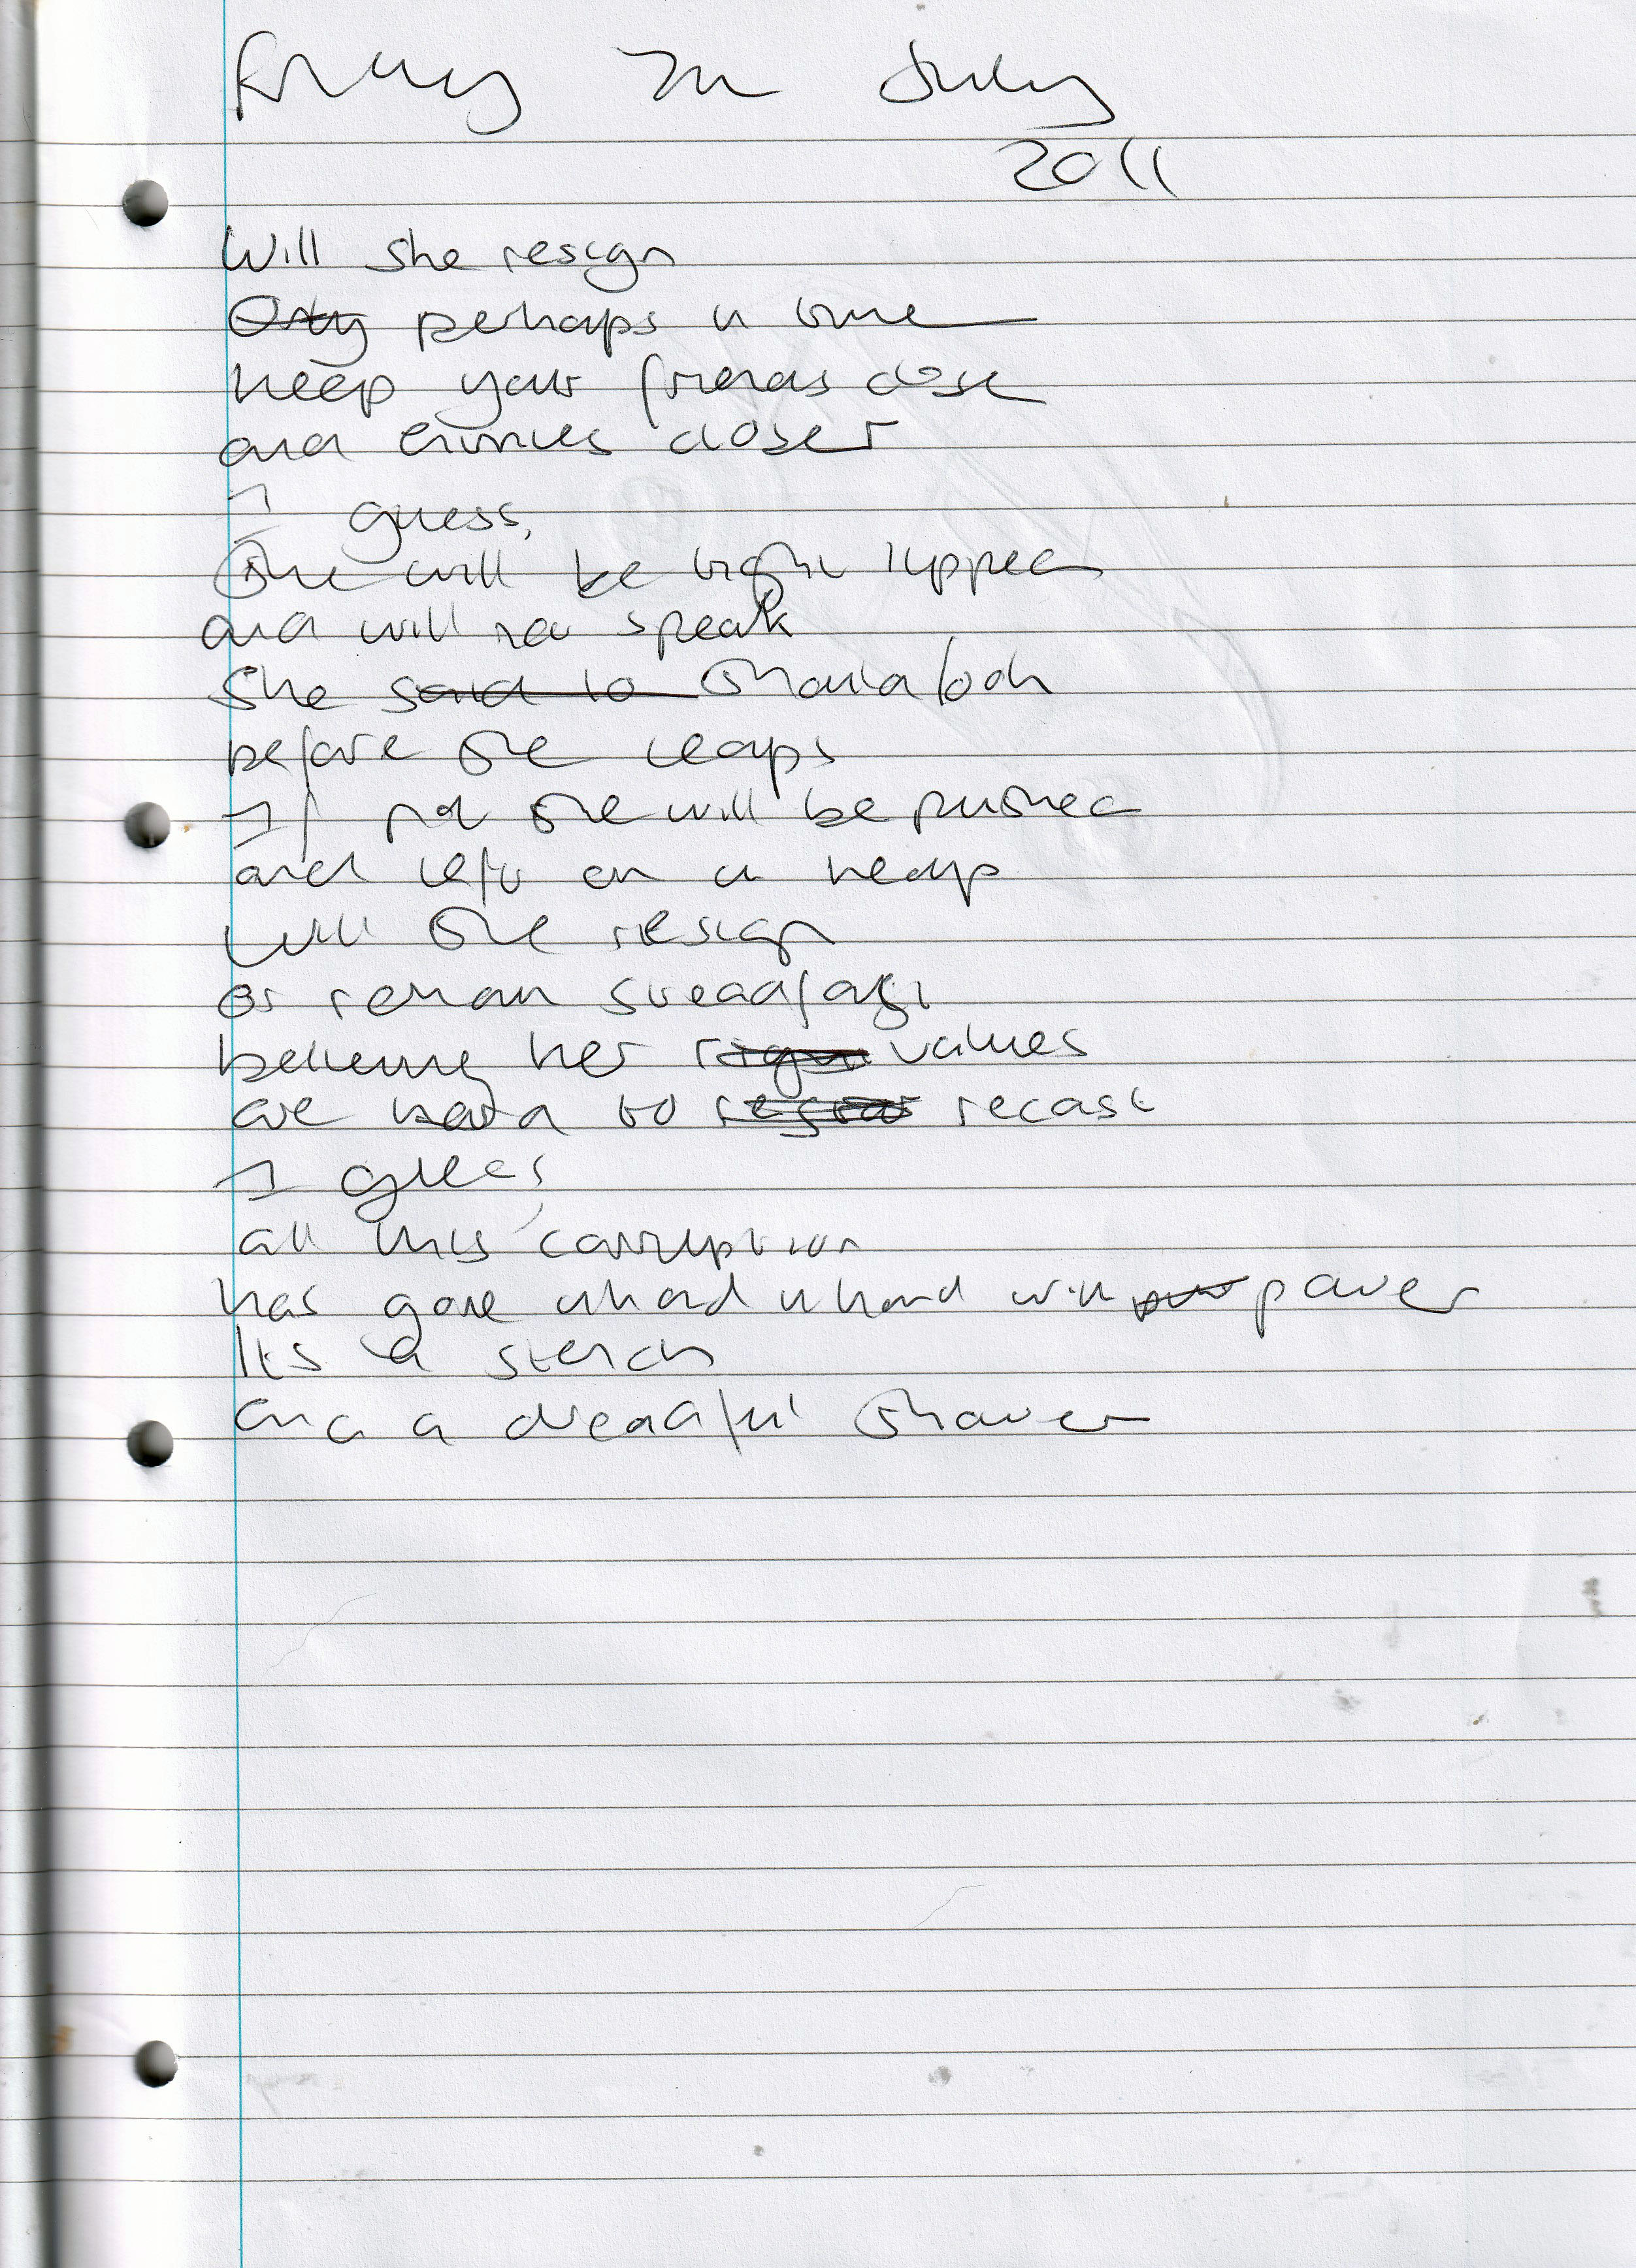 Friday In July
2011
Will she resign
Only perhaps in time
keep your friends close
and enimies closer
I guess,
She will be tight lipped
and will not speak
She said to should look
before she leaps
If not she will be pushed
and left on a heap
Will she resign
or remain steadfast
believing her right values
are hard to recast
I guess,
all this corruption
has gone in hand in hand with power
Its a stench
and a dreadful shower